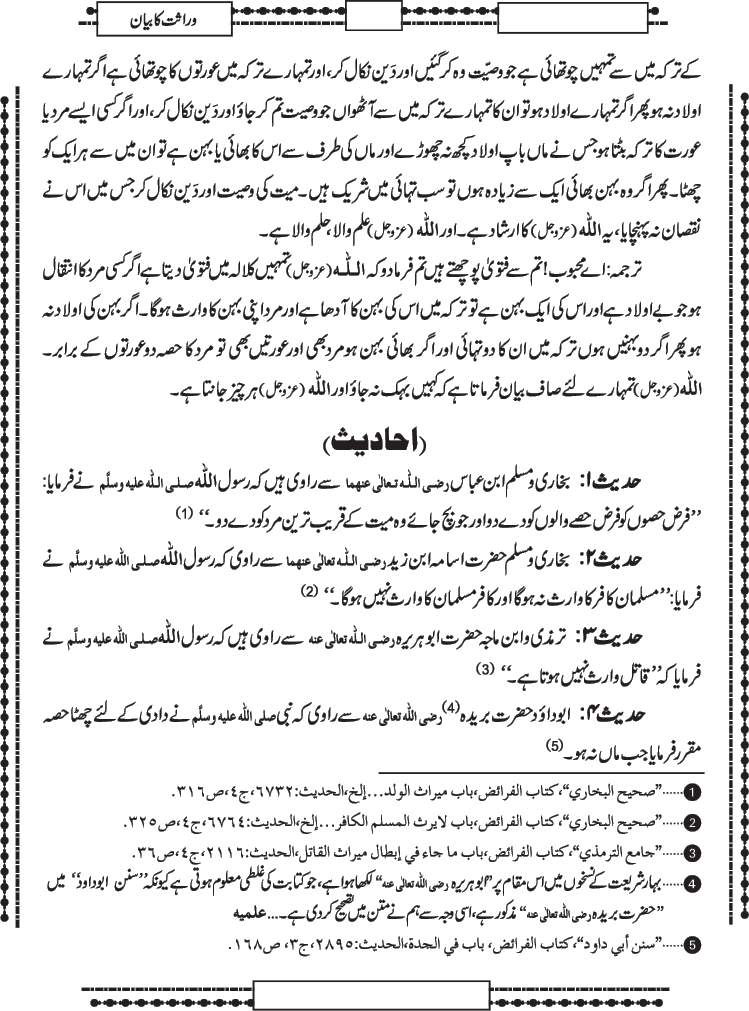 وراثت کا بیان
کے ترکہ میں سے تمہیں چوتھائی ہے جو وصیّت وہ کر گئیں اور دَین نکال کر، اور تمہارے ترکہ میں عورتوں کا چوتھائی ہے اگر تمہارے
اولاد نہ ہو پھر اگر تمہارے اولاد ہو تو ان کا تمہارے ترکہ میں سے آٹھواں جو وصیت تم کر جاؤ اور دَین نکال کر، اور اگر کسی ایسے مرد یا
عورت کا ترکہ بٹتا ہو جس نے ماں باپ اولاد کچھ نہ چھوڑے اور ماں کی طرف سے اس کا بھائی یا بہن ہے تو ان میں سے ہر ایک کو
چھٹا۔ پھر اگر وہ بہن بھائی ایک سے زیادہ ہوں تو سب تہائی میں شریک ہیں۔ میت کی وصیت اور دَین نکال کر جس میں اس نے
نقصان نہ پہنچایا، یہ اللہ (عزوجل) کا ارشاد ہے۔ اور اللہ (عزوجل) علم والا، حلم والا ہے۔
ترجمہ: اے محبوب! تم سے فتویٰ پوچھتے ہیں تم فرما دو کہ اللہ (عزوجل) تمہیں کلالہ میں فتویٰ دیتا ہے اگر کسی مرد کا انتقال
ہو جو بے اولاد ہے اور اس کی ایک بہن ہے تو ترکہ میں اس کی بہن کا آدھا ہے اور مرد اپنی بہن کا وارث ہوگا۔ اگر بہن کی اولاد نہ
ہو پھر اگر دو بہنیں ہوں ترکہ میں ان کا دو تہائی اور اگر بھائی بہن ہو مرد بھی اور عورتیں بھی تو مرد کا حصہ دو عورتوں کے برابر۔
اللہ (عزوجل) تمہارے لئے صاف بیان فرماتا ہے کہ کہیں بہک نہ جاؤ اور اللہ (عزوجل) ہر چیز جانتا ہے۔
(احادیث)
حدیث ۱: بخاری و مسلم ابن عباس رضی اللہ تعالٰی عنہما سے راوی ہیں کہ رسول اللہ صلی اللہ علیہ وسلَّم نے فرمایا:
’’فرض حصوں کو فرض حصے والوں کو دے دو اور جو بچ جائے وہ میت کے قریب ترین مرد کو دے دو۔‘‘ (1)
حدیث ۲: بخاری و مسلم حضرت اسامہ ابن زید رضی اللہ تعالٰی عنہما سے راوی کہ رسول اللہ صلی اللہ علیہ وسلَّم نے
فرمایا: ’’مسلمان کافر کا وارث نہ ہوگا اور کافر مسلمان کا وارث نہیں ہوگا۔‘‘ (2)
حدیث ۳: ترمذی و ابن ماجہ حضرت ابو ہریرہ رضی اللہ تعالٰی عنہ سے راوی ہیں کہ رسول اللہ صلی اللہ علیہ وسلَّم نے
فرمایا کہ ’’قاتل وارث نہیں ہوتا ہے۔‘‘ (3)
حدیث ۴: ابو داؤد حضرت بریدہ (4) رضی اللہ تعالٰی عنہ سے راوی کہ نبی صلی اللہ علیہ وسلَّم نے دادی کے لئے چھٹا حصہ
مقرر فرمایا جب ماں نہ ہو۔ (5)
1 ......"صحيح البخاري"، كتاب الفرائض، باب ميراث الولد...إلخ، الحديث: ٦٧٣٢، ج٤، ص٣١٦.
2 ......"صحيح البخاري"، كتاب الفرائض، باب لايرث المسلم الكافر...إلخ، الحديث: ٦٧٦٤، ج٤، ص٣٢٥.
3 ......"جامع الترمذي"، كتاب الفرائض، باب ما جاء في إبطال ميراث القاتل، الحديث: ٢١١٦، ج٤، ص٣٦.
4 ......بہار شریعت کے نسخوں میں اس مقام پر "ابو ہریرہ رضی اللہ تعالٰی عنہ" لکھا ہوا ہے، جو کتابت کی غلطی معلوم ہوتی ہے کیونکہ "سنن ابو داود" میں
"حضرت بریدہ رضی اللہ تعالٰی عنہ" مذکور ہے، اسی وجہ سے ہم نے متن میں تصحیح کر دی ہے۔...علمیه
5 ......"سنن أبي داود"، كتاب الفرائض، باب في الجدة، الحديث: ٢٨٩٥، ج٣، ص١٦٨.